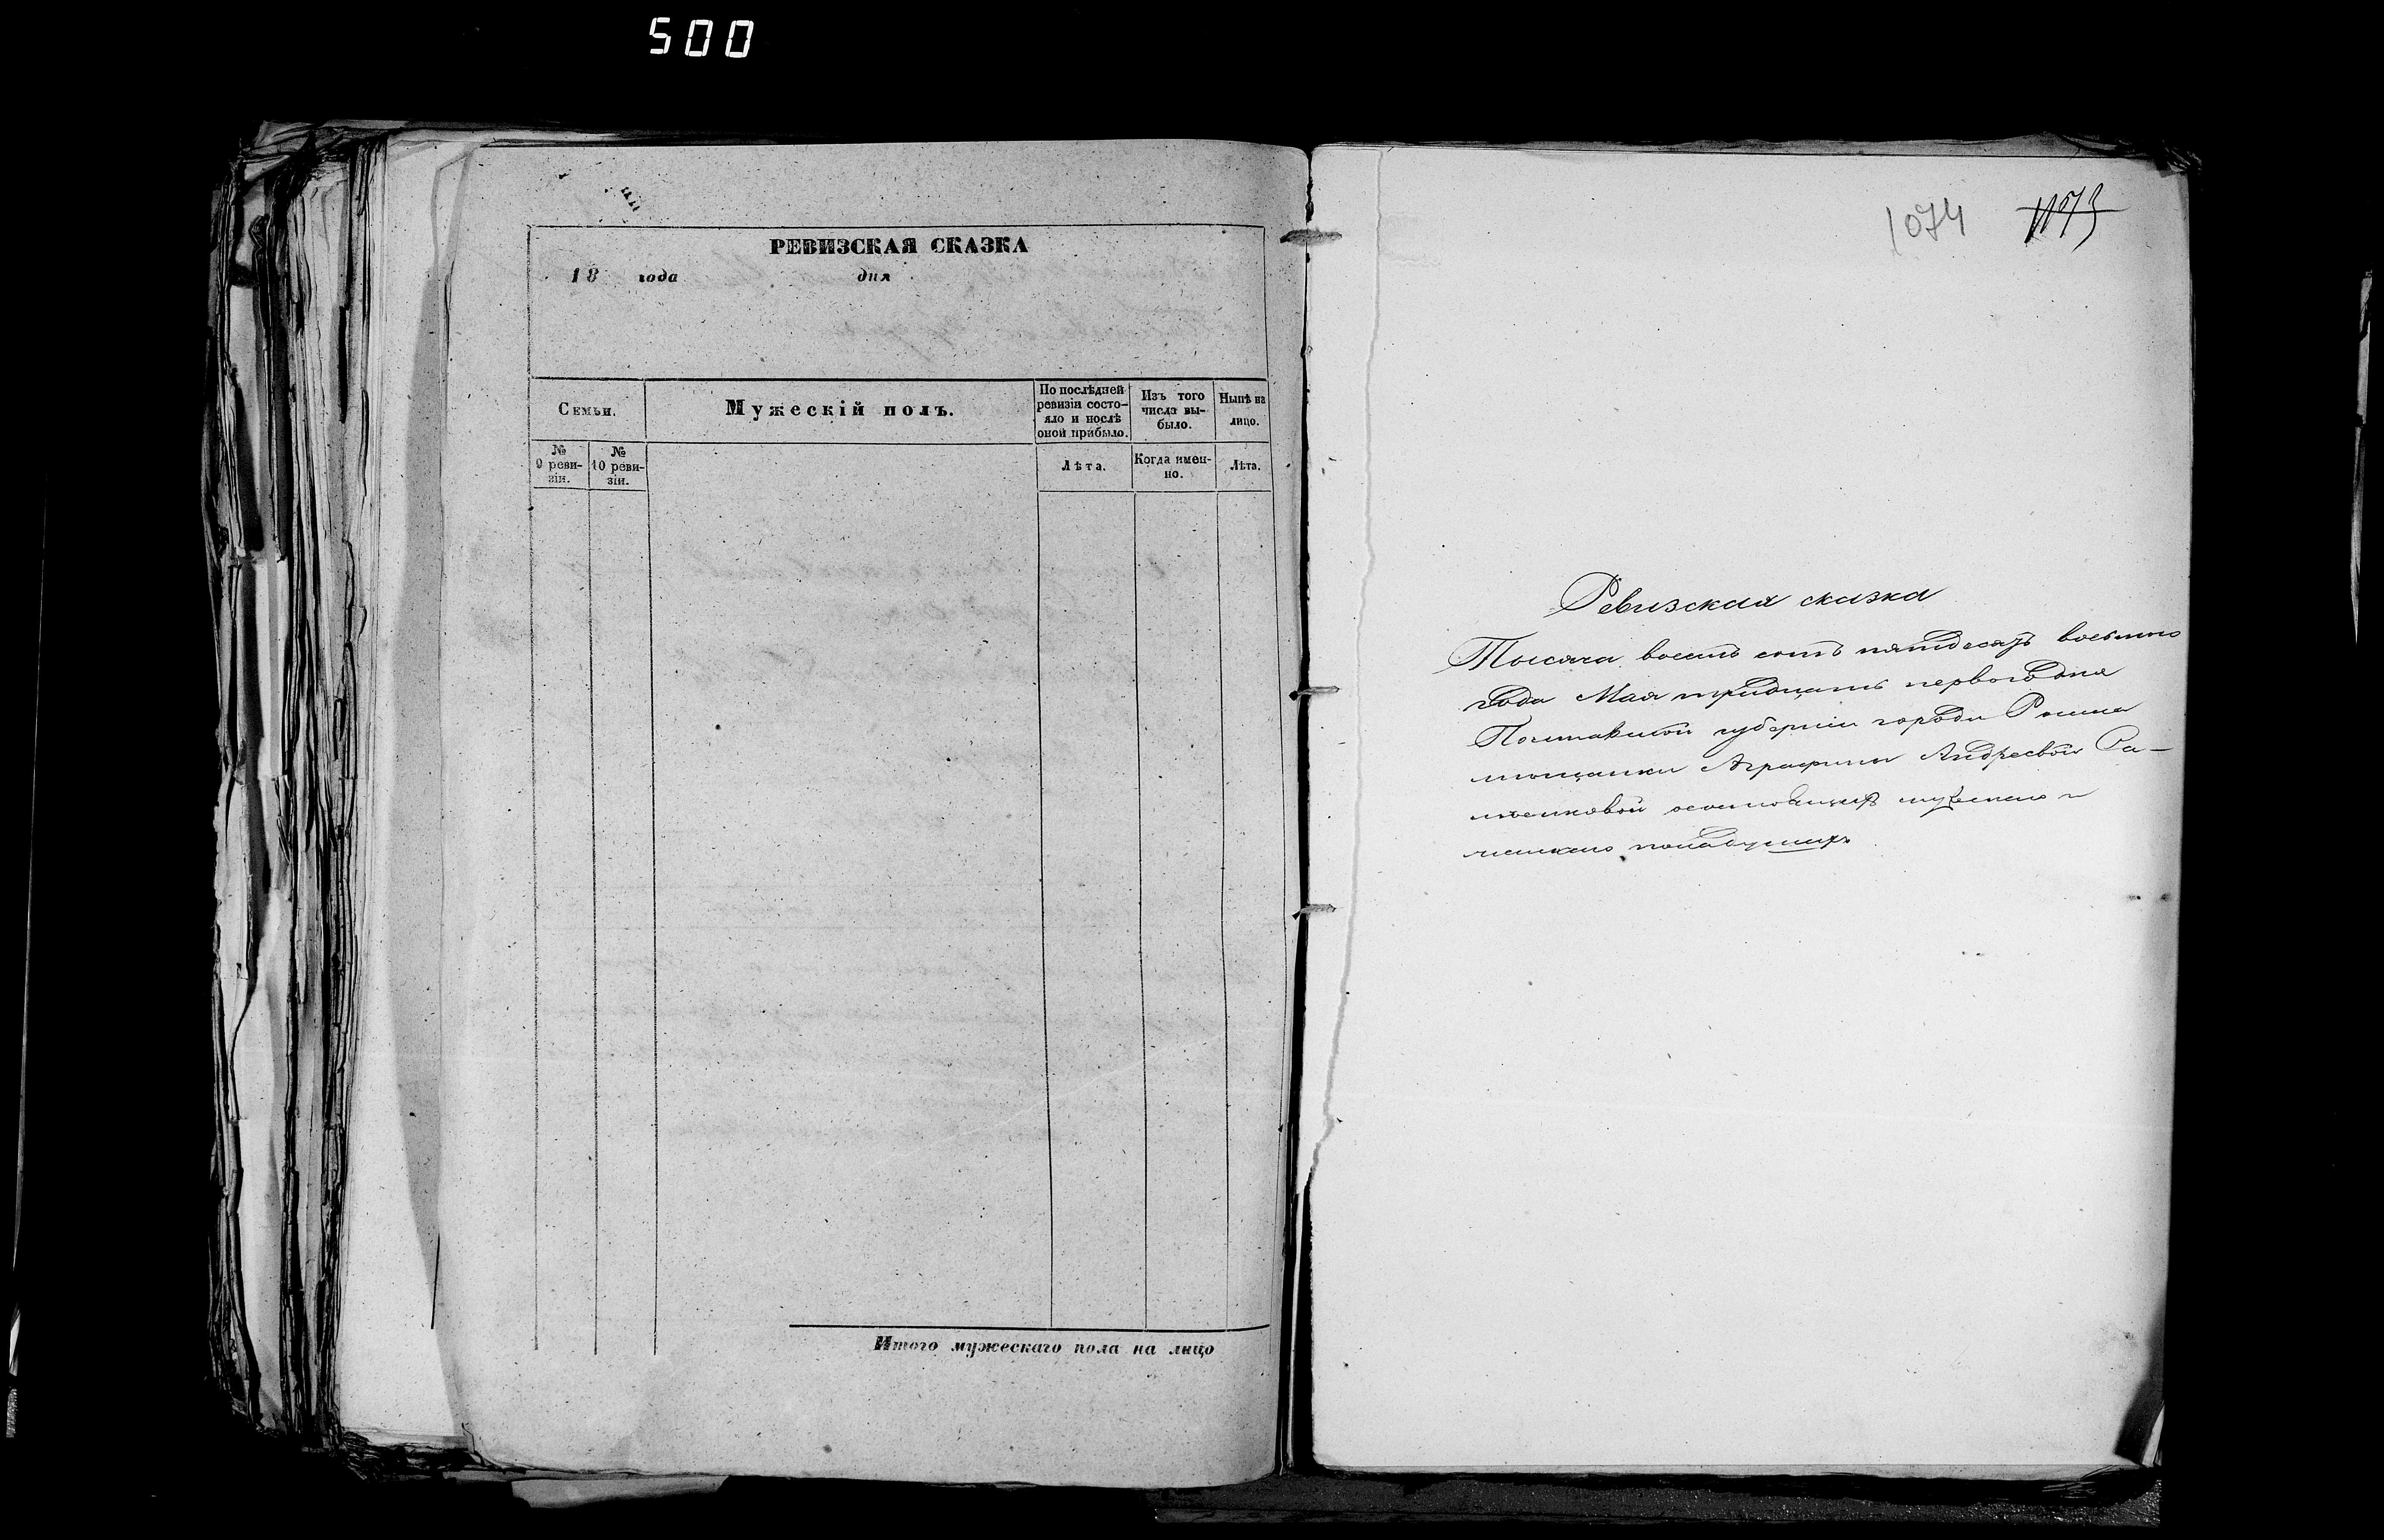 500
РЕВИЗСКАЯ СКАЗКА
18 года дня
Семьи.
Мужескій полъ.
По послѣдней ревизіи состо-
яло и послѣ
оной прибыло.
Изъ того
числа вы-
было.
Нынѣ на
лицо.
№
9 реви-
зіи.
№
10 реви-
зіи.
Лѣта.
Когда имен-
но.
Лѣта.
Итого мужескаго пола на лицо
1074
1073
Ревизская сказка
Тысяча восемь сотъ пятдесятъ восьмого
года Мая тридцать первого дня
Полтавской губерніи города Ромна
мещанки Аграфины Андреевой Са-
осостоящихъ мужеска и
женскаго пола душахъ